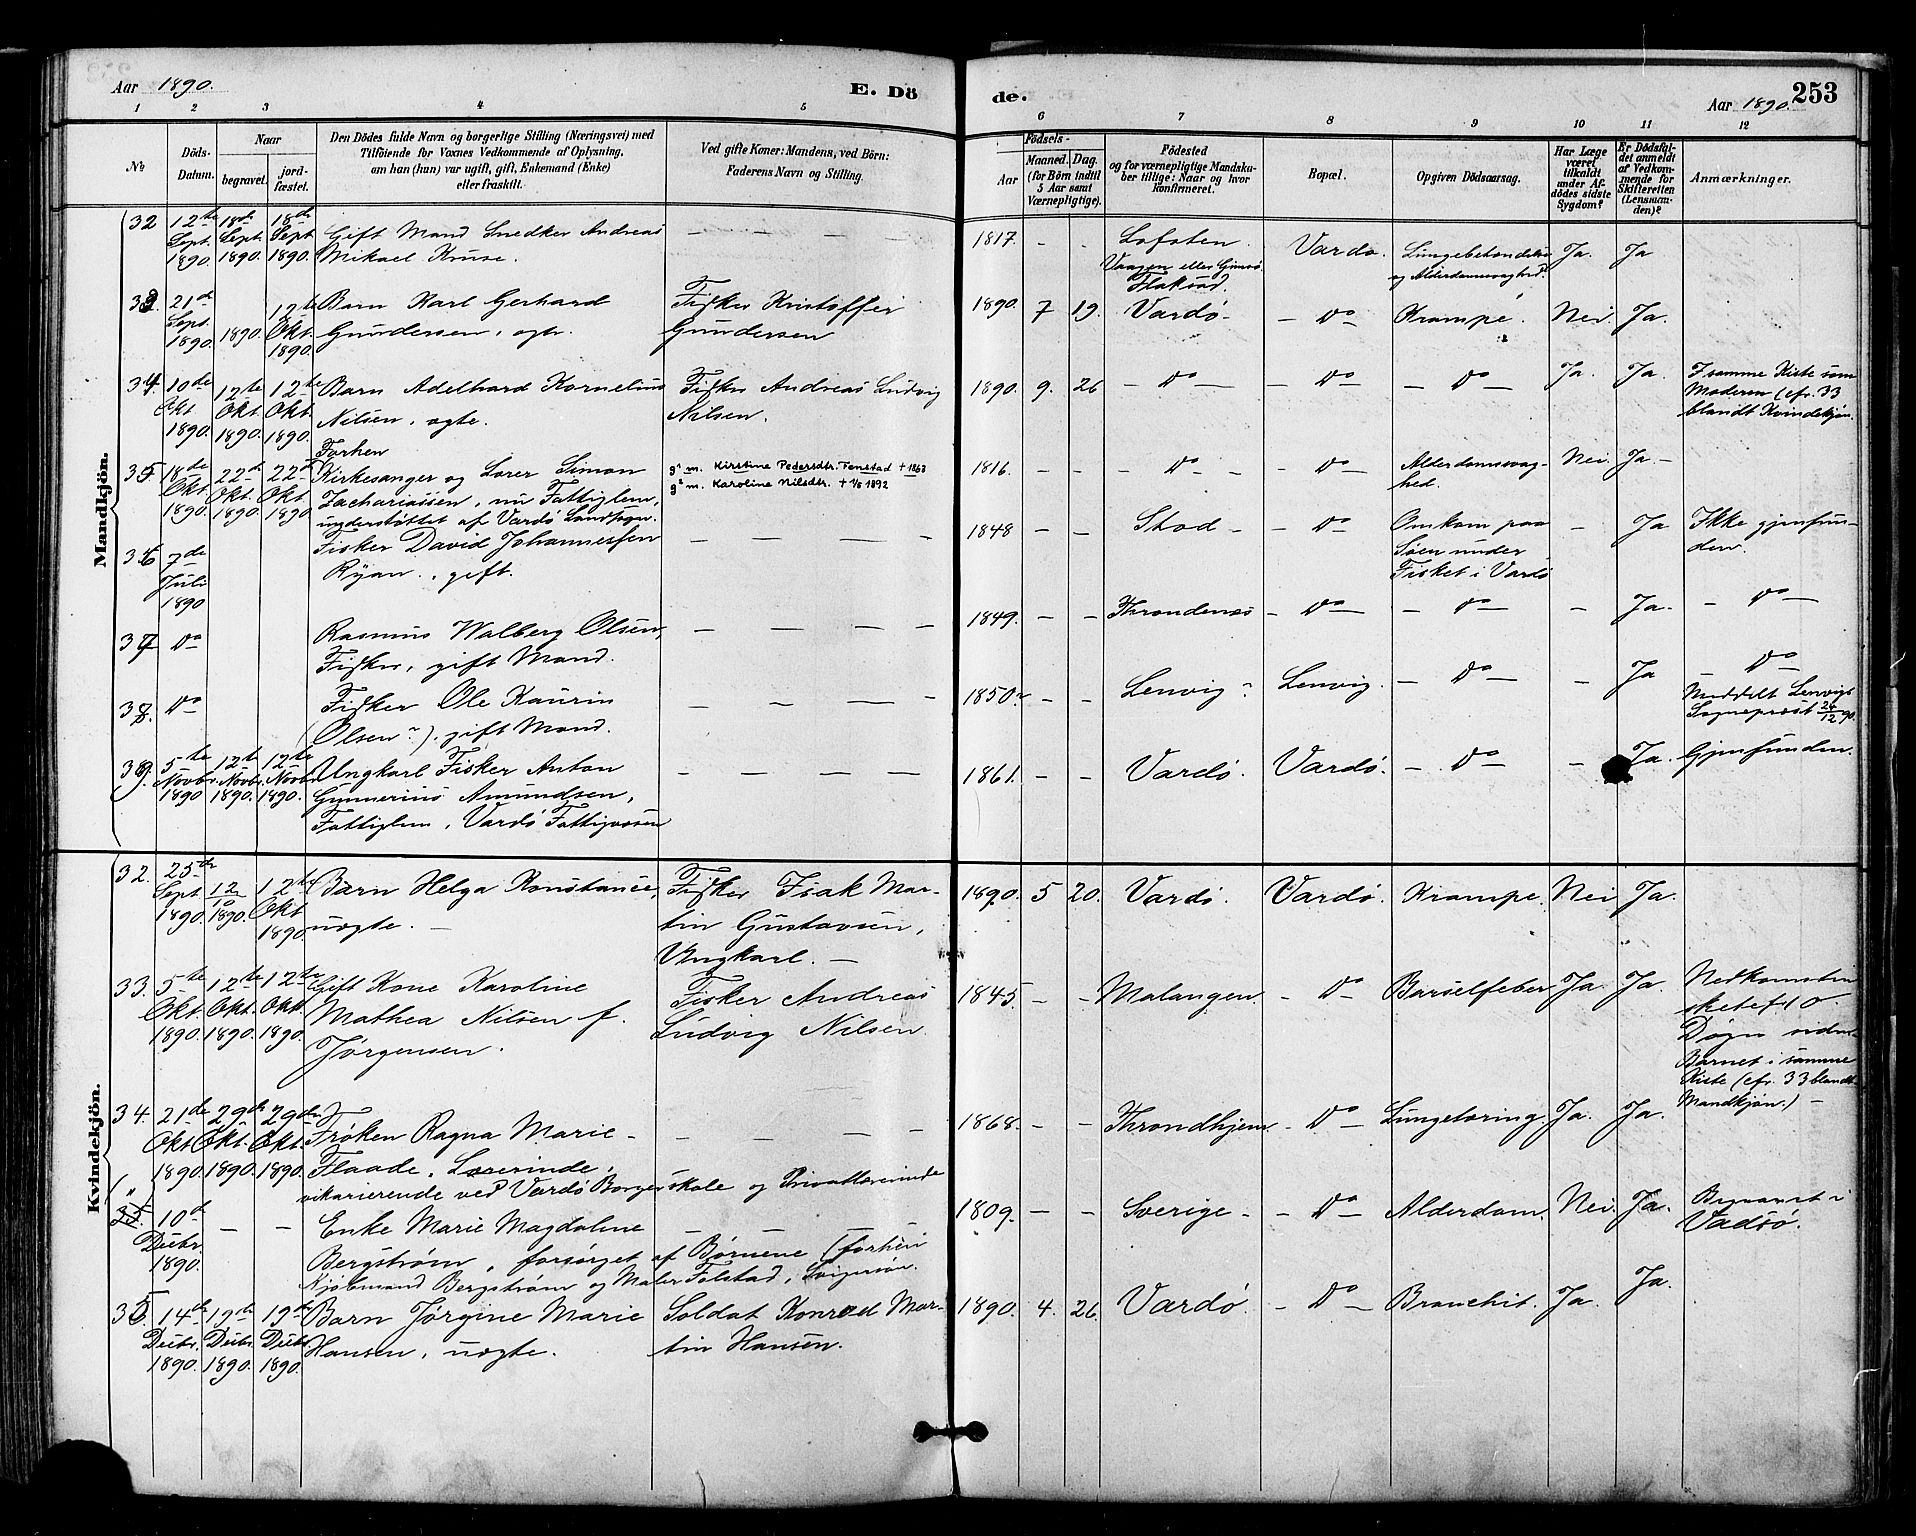 Aar 1890.
E. Dö
de.
Aar 1890.
253
1 2 3 4 5 6 7 8 9 10 11 12
No
Döds-Datum.
Naar
begravet.
jord-fæstet.
Den Dödes fulde Navn og borgerlige Stilling (Næringsvei) med
Tilföiende for Voxnes Vedkommende af Oplysning,
om han (hun) var ugift, gift, Enkemand (Enke)
eller fraskilt.
Ved gifte Koner: Mandens, ved Börn:
Faderens Navn og Stilling.
Födsels-
Aar
Maaned. Dag.
(for Börn indtil
5 Aar samt
Værnepligtige).
Födested
og for værnepligtige Mandska-
ber tillige: Naar og hvor
konfirmeret.
Bopæl.
Opgiven Dödsaarsag.
Har Læge
været
tilkaldt
under Af-
dödes sidste
Sygdom?
Er Dödsfal-
det anmeldt
af Vedkom-
mende for
Skifteretten
(Lensman-
den)?
Anmærkninger.
Mandkjön.
32 12te Sept. 1890. 18de Sept. 1890. 18de Sept. 1890.
Gift Mand Snedker Andreas
Mikael Kruse.
— — — —
1817. - - Lofoten.
Vaagen eller Gimsö.
Vardø
og Alderdomssvaghed.
Ja. Ja
33. 21de Sept. 1890. 1890. 12te Okt. 1890.
Barn Karl Gerhard
Gundersen, ægte.
Fisker Kristoffer
Gundersen
1890. 7 19. Vardø. - Do Krampe. Nei. Ja.
34 10de Okt 1890. 12te Okt. 1890. 12te Okt. 1890.
Barn Adelhard Kornelius
Nilsen, ægte.
Fisker Andreas Ludvig
Nilsen.
1890. 9. 26 - Do - - Do - Do - Ja. Ja.
I samme Kiste som
Moderen (cfr. 33
blandt Kvindekjøn.
35 18de Okt. 1890. 22de Okt. 1890. 22de Okt. 1890
Forhen
Kirkesanger og Lærer Simon
Zachariassen, nu Fattiglem,
understøttet af Vardø Landsogn.
g¹ m. Kirstine Pedersdtr. Fenstad + 1863
g² m. Karoline Nilsdtr. + 1/8 1892
1816. - - - Do - - Do Alderdomssvag-
hed. Nei. Ja -
36 7de Juli 1890
Fisker David Johannessen
Ryan., gift.
— — — —
1848 - - Stod - - Do Omkom paa
Søen under
Fisket i Vardø
- Ja Ikke gjenfun-
den.
37 Do
Rasmus Walberg Olsen,
Fisker, gift Mand.
— — — —
1849. - - Throndenæs - Do - Do - - Ja. - Do -
38. Do
Fisker Ole Kaurin
(Olsen?), gift Mand.
— — — —
1850? - - Lenvig? Lenvig. - Do - - Ja - Do -
Meddelt Lenvigs
Sogneprest 24/12 90.
39. 5te Novbr. 1890 12te Novbr. 1890. 12te Novbr. 1890.
Ungkarl Fisker Anton
Gunnerius Amundsen,
Fattiglem, Vardø Fattigvæsen
— — — —
1861. - - Vardø. Vardø. - Do - - Ja. Gjenfunden.
Kvindekjön.
32. 25de Sept. 1890. 12/10 1890. 12te Okt 1890.
Barn Helga Konstanse,
uægte. -
Fisker Isak Mar-
tin Gustavsen,
Ungkarl. -
1890. 5 20. Vardø. Vardø. Krampe. Nei Ja.
33. 5te Okt. 1890. 12te Okt. 1890. 12te Okt. 1890.
Gift Kone Karoline
Mathea Nilsen f.
Jørgensen.
Fisker Andreas
Ludvig Nilsen.
1845 - - Malangen. - Do - Barselfeber Ja. Ja.
Nedkomsten
skete f 10
Døgn siden
Barnet i samme
Kiste (cfr. 33 blandt
Mandkjøn.) -
34. 21de Okt. 1890. 29de Okt. 1890. 29de Okt. 1890.
Frøken Ragna Marie -
Flaade, Lærerinde,
vikarierende ved Vardø Borgerskole og Privatlærerinde
1868. - - Throndhjem. - Do Lungetæring. Ja. Ja.
" 35. 10de Decbr. 1890. - -
Enke Marie Magdalene
Bergstrøm, forsørget af Børnene (forhen
Kjøbmand Bergstrøm og Maler Folstad, Svigersøn.
1809. - - Sverige - - Do - Alderdom. Nei. Ja.
Begravet i
Vadsø.
35 14de Decbr. 1890. 19de Decbr. 1890. 19de Decbr. 1890.
Barn Jørgine Marie
Hansen, uægte.
Soldat Konrad Mar-
tin Hansen.
1890. 4. 26. Vardø. - Do - Bronchit. Ja. Ja.